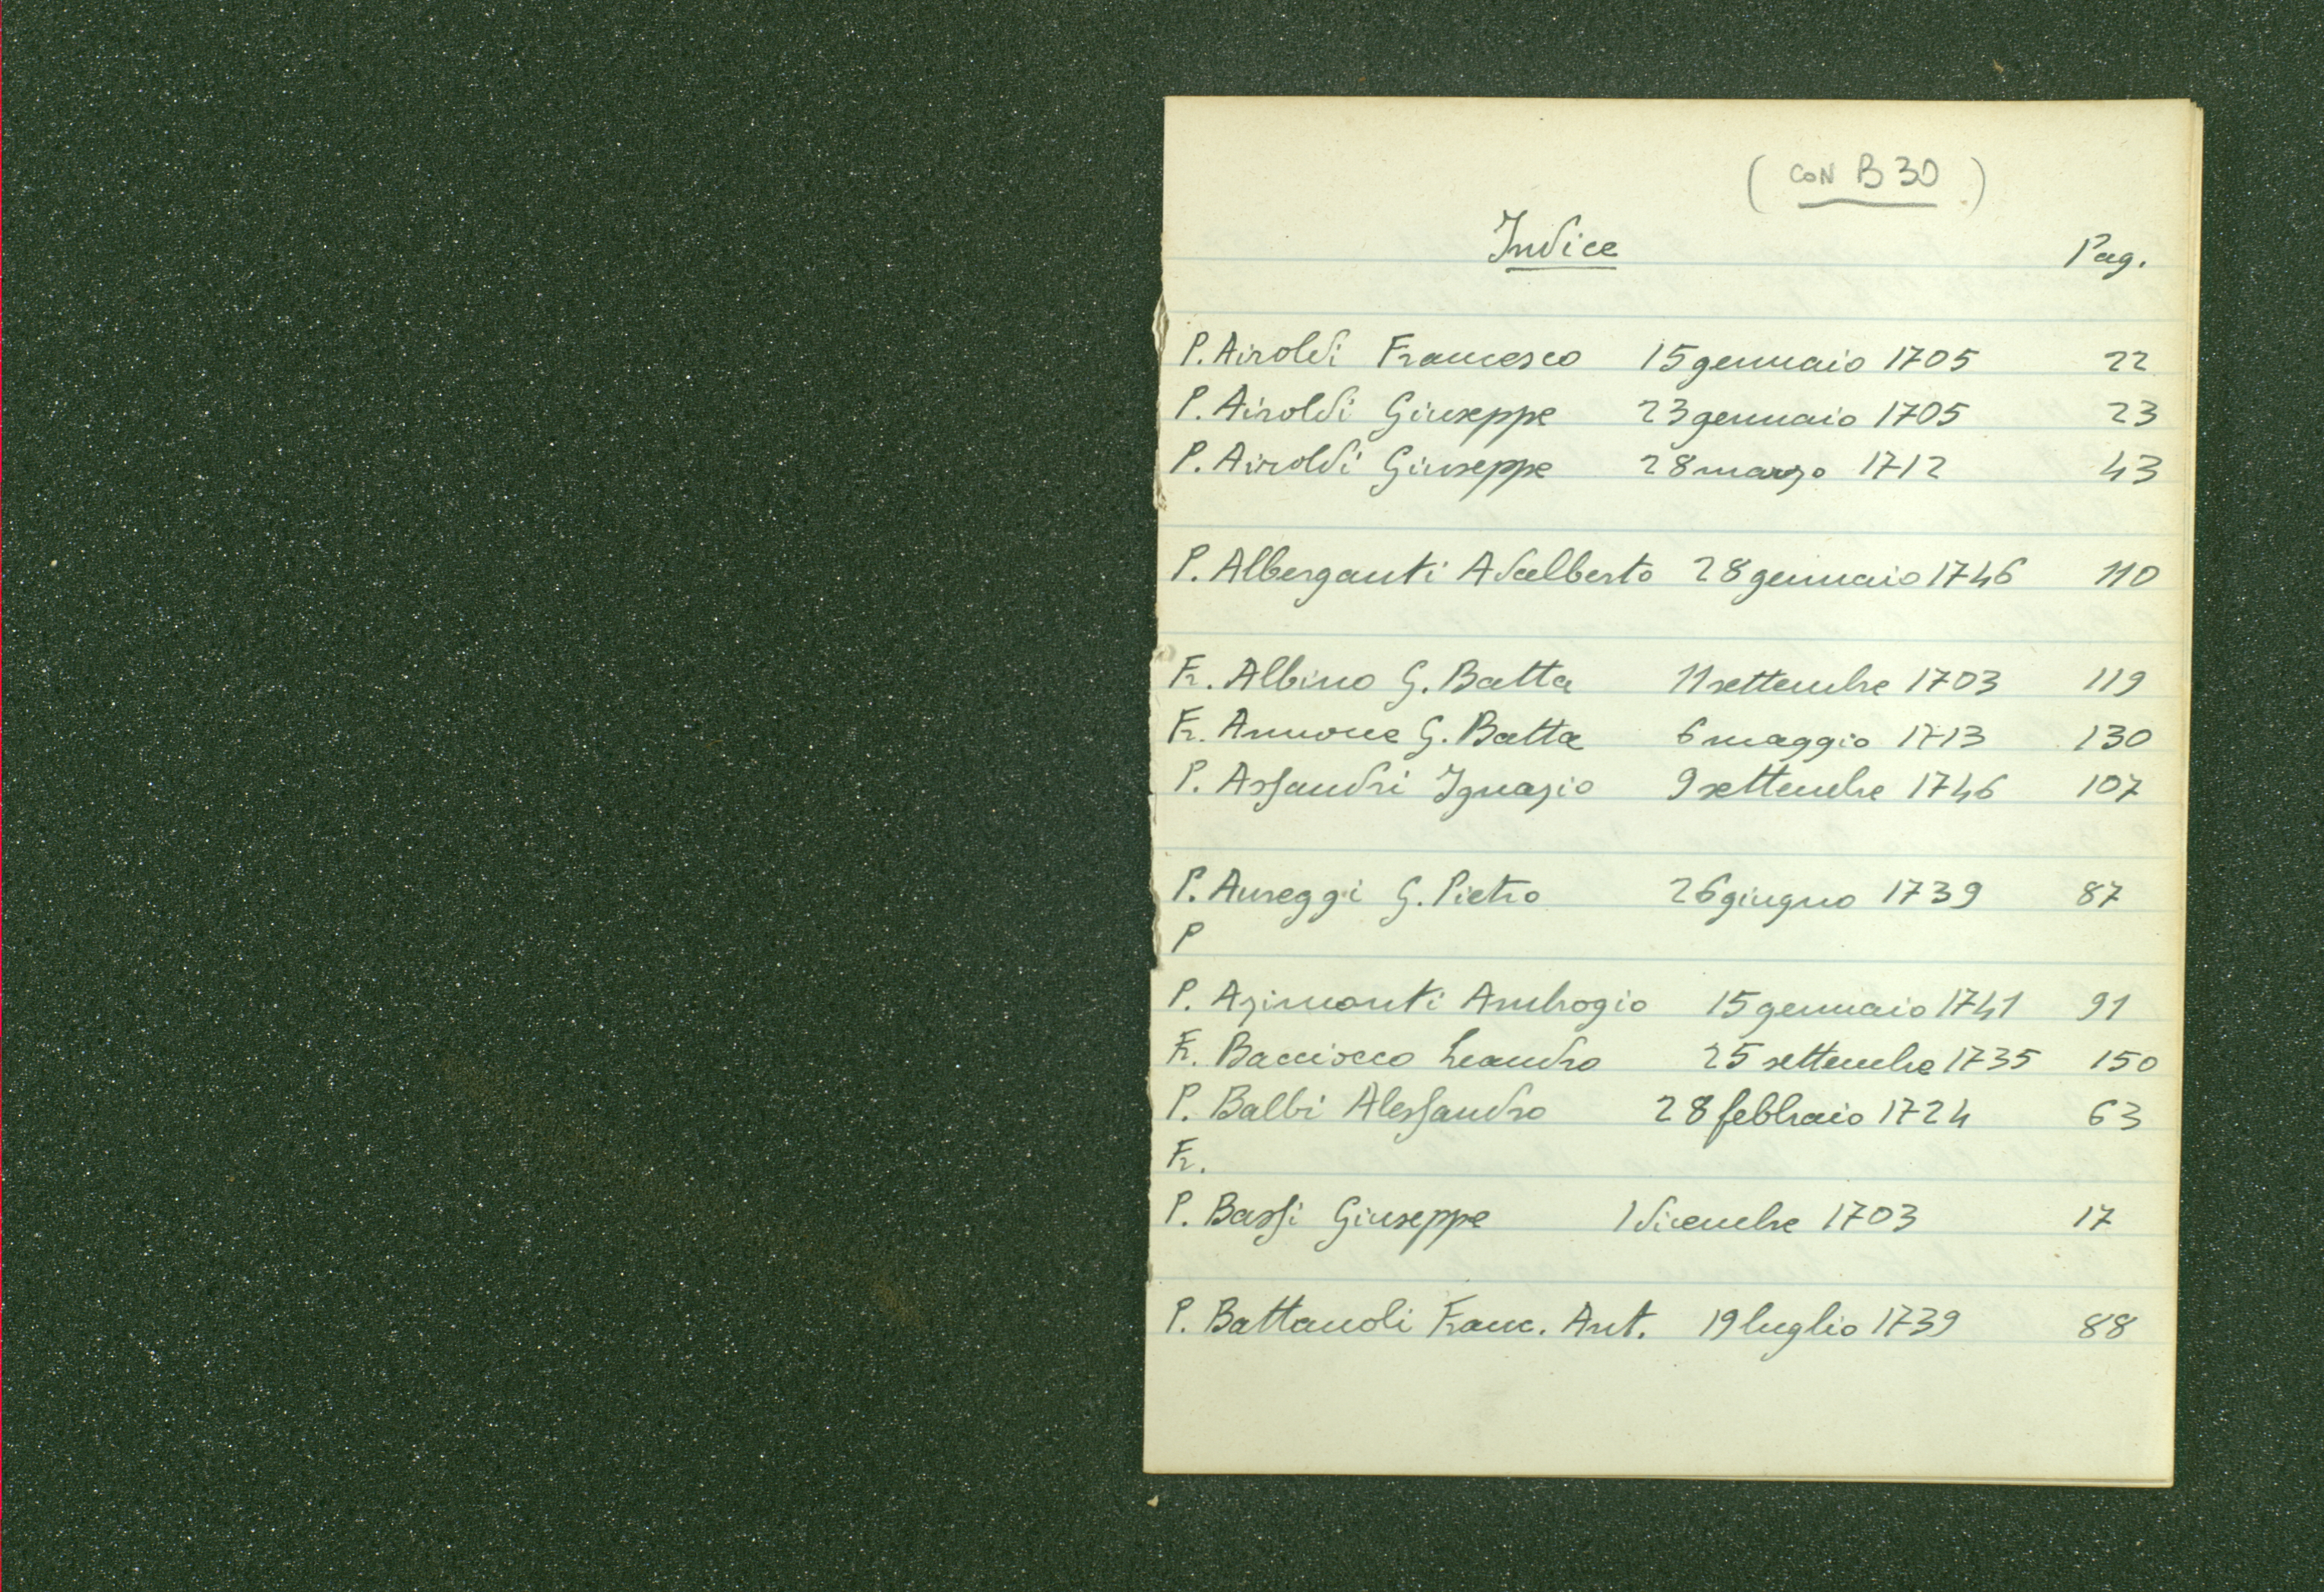 ( CON B 30 )
Indice Pag.
P. Airoldi Francesco 15 gennaio 1705 22
P. Airoldi Giuseppe 23 gennaio 1705 23
P. Airoldi Giuseppe 28 marzo 1712 43
P. Alberganti Adalberto 28 gennaio 1746 110
Fr. Albino G. Batta 11 settembre 1703 119
Fr. Annone G. Batta 6 maggio 1713 130
P. Assandri Ignazio 9 settembre 1746 107
P. Aureggi G. Pietro 26 giugno 1739 87
P
P. Azimonti Ambrogio 15 gennaio 1741 91
Fr. Bacciocco Leandro 25 settembre 1735 150
P. Balbi Alessandro 28 febbraio 1724 63
Fr.
P. Bassi Giuseppe 1 dicembre 1703 17
P. Battanoli Franc. Ant. 19 luglio 1739 88